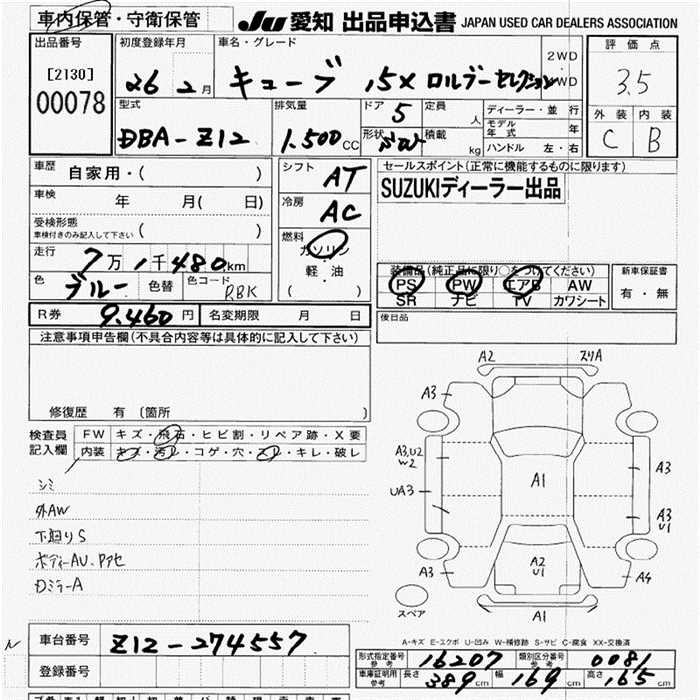 車内保管・守衛保管
JU 愛知 出品申込書 JAPAN USED CAR DEALERS ASSOCIATION
出品番号
[2130]
00078
初度登録年月
26 2月
車名・グレード
キューブ 15X
2WD
4WD
評価点
3.5
外装 内装
C B
型式
DBA-Z12
排気量
1.500cc
ドア 5
形状
定員 人
積載 kg
ディーラー・並行
モデル年式 年
ハンドル 左・右
車歴 自家用・( )
車検 年 月( 日)
受検形態
車検付きのみ記入して下さい ( )
走行 7万1千480km
色 ブルー 色替 色コード RBK
シフト AT
冷房 AC
燃料 ガソリン
軽・油
( )
セールスポイント(正常に機能するものに限ります)
SUZUKIディーラー出品
装備品(純正品に限り○をつけてください)
PS PW エアB AW
SR ナビ TV カワシート
新車保証書
有・無
R券 9.460円 名変期限 月 日
後日品
注意事項申告欄(不具合内容等は具体的に記入して下さい)
修復歴 有 〔箇所 〕
検査員記入欄
FW キズ・飛石・ヒビ割・リペア跡・X要
内装 キズ・汚レ・コゲ・穴・スレ・キレ・破レ
シミ
外AW
下廻りS
ボディーAU・
DミラーA
A2 スリA
A3
A3,U2
W2
UA3
A1
A3
A3
U1
A2
U1
A3 A4
A1
スペア
A-キズ E-エクボ U-凹み W-補修跡 S-サビ C-腐食 XX-交換済
車台番号 Z12-274557
登録番号
形式指定番号 参考 16207 類別区分番号 参考 0081
車庫証明用 参考 長さ 389cm 幅 169cm 高さ 165cm